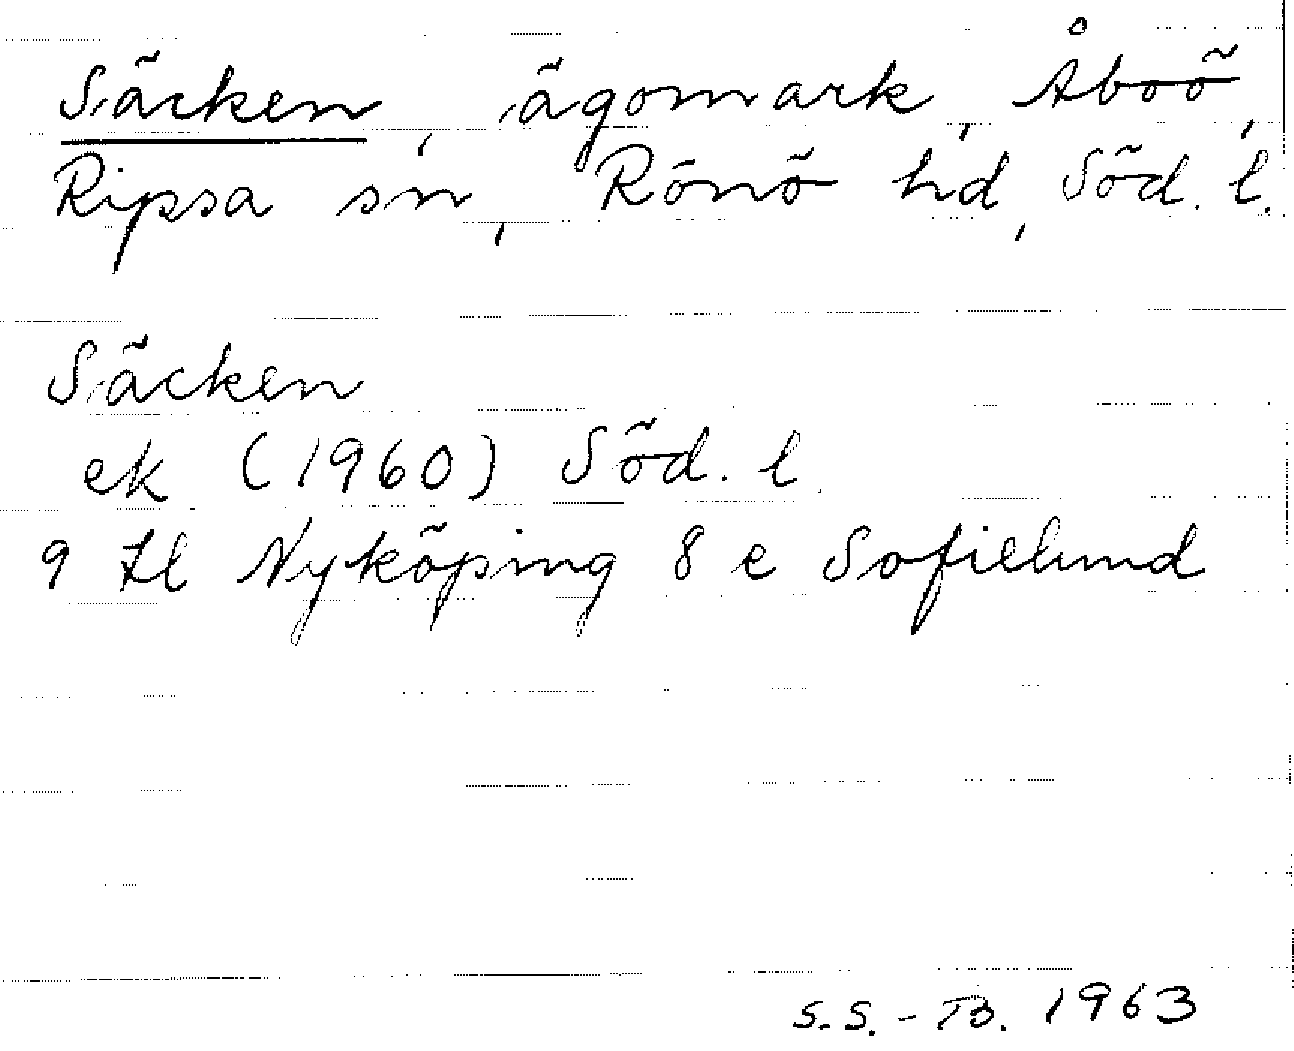 Säcken, ägomark, Åboö,
Ripsa sn, Rönö hd, Söd. l.
Säcken
ek (1960) Söd. l.
9 Hl Nyköping 8 e Sofielund
S.S.-B. 1963